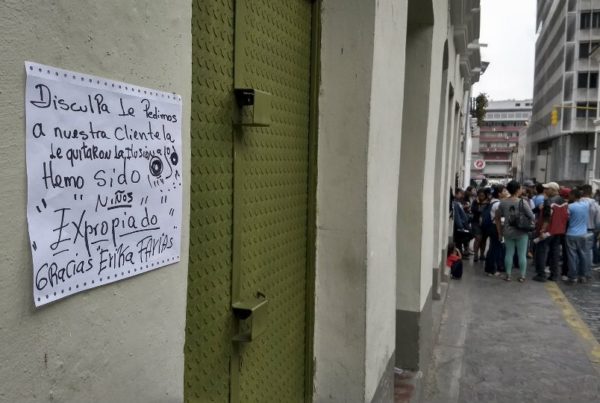 Disculpa le Pedimos
a nuestra Clientela
le quitaron la Ilusión a los
Hemo SiDO
" " NIÑOS " "
Expropiado
Gracias Erika FARIAS